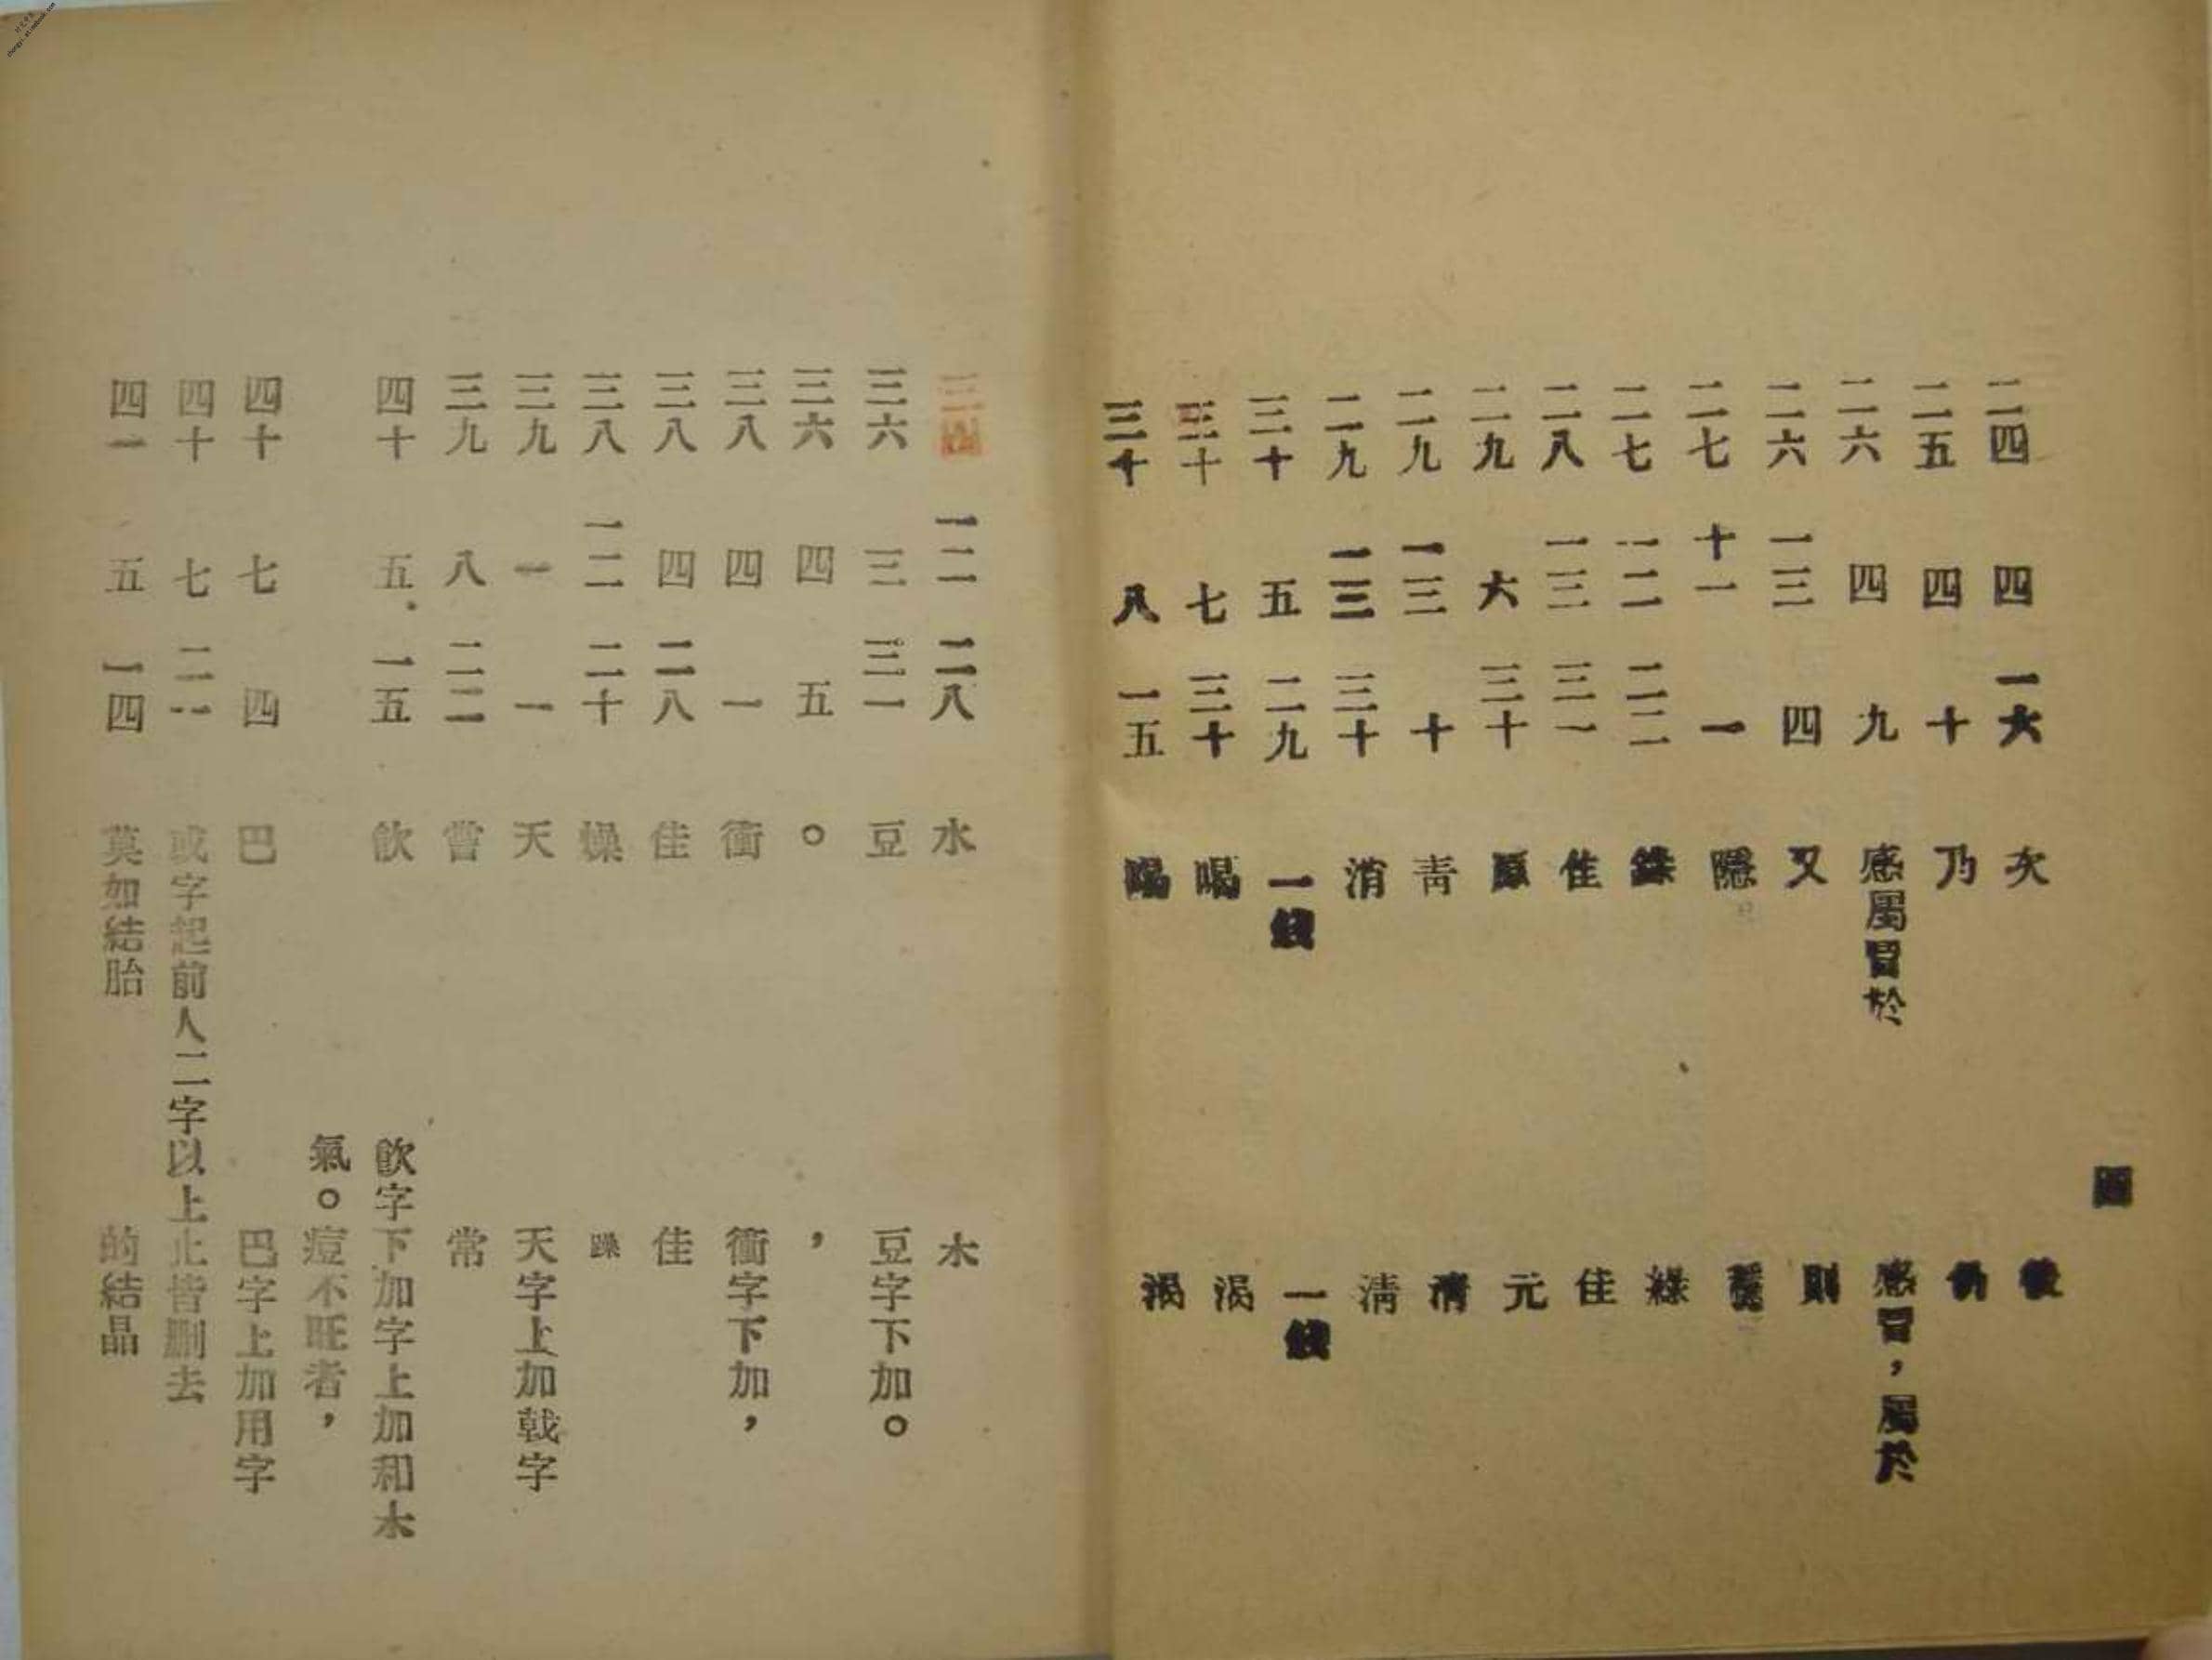 四
二四 四 一六 次 後
二五 四 十 乃 仍
二六 四 九 感屬冒於 感冒，屬於
二六 一三 四 又 則
二七 十一 一 隱
二七 一二 二二 綠
二八 一三 三一 佳 佳
二九 六 三十 原 元
二九 一三 十 青 清
二九 一三 三十 消 清
三十 五 二九 一錢 一錢
三十 七 三十 喝 渴
三十 八 一五 喝 渴
三四 一二 二八 水 木
三六 三 三一 豆 豆字下加。
三六 四 五 。 ，
三八 四 一 衝 衝字下加，
三八 四 二八 佳 佳
三八 一二 二十 燥 躁
三九 一 一 天 天字上加戟字
三九 八 二二 嘗 常
四十 五 一五 飲 飲字下加字上加和木
氣。痘不旺者，
四十 七 四 巴 巴字上加用字
四十 七 二一 或字起前人二字以上止皆删去
四一 五 一四 莫如結胎 的結晶